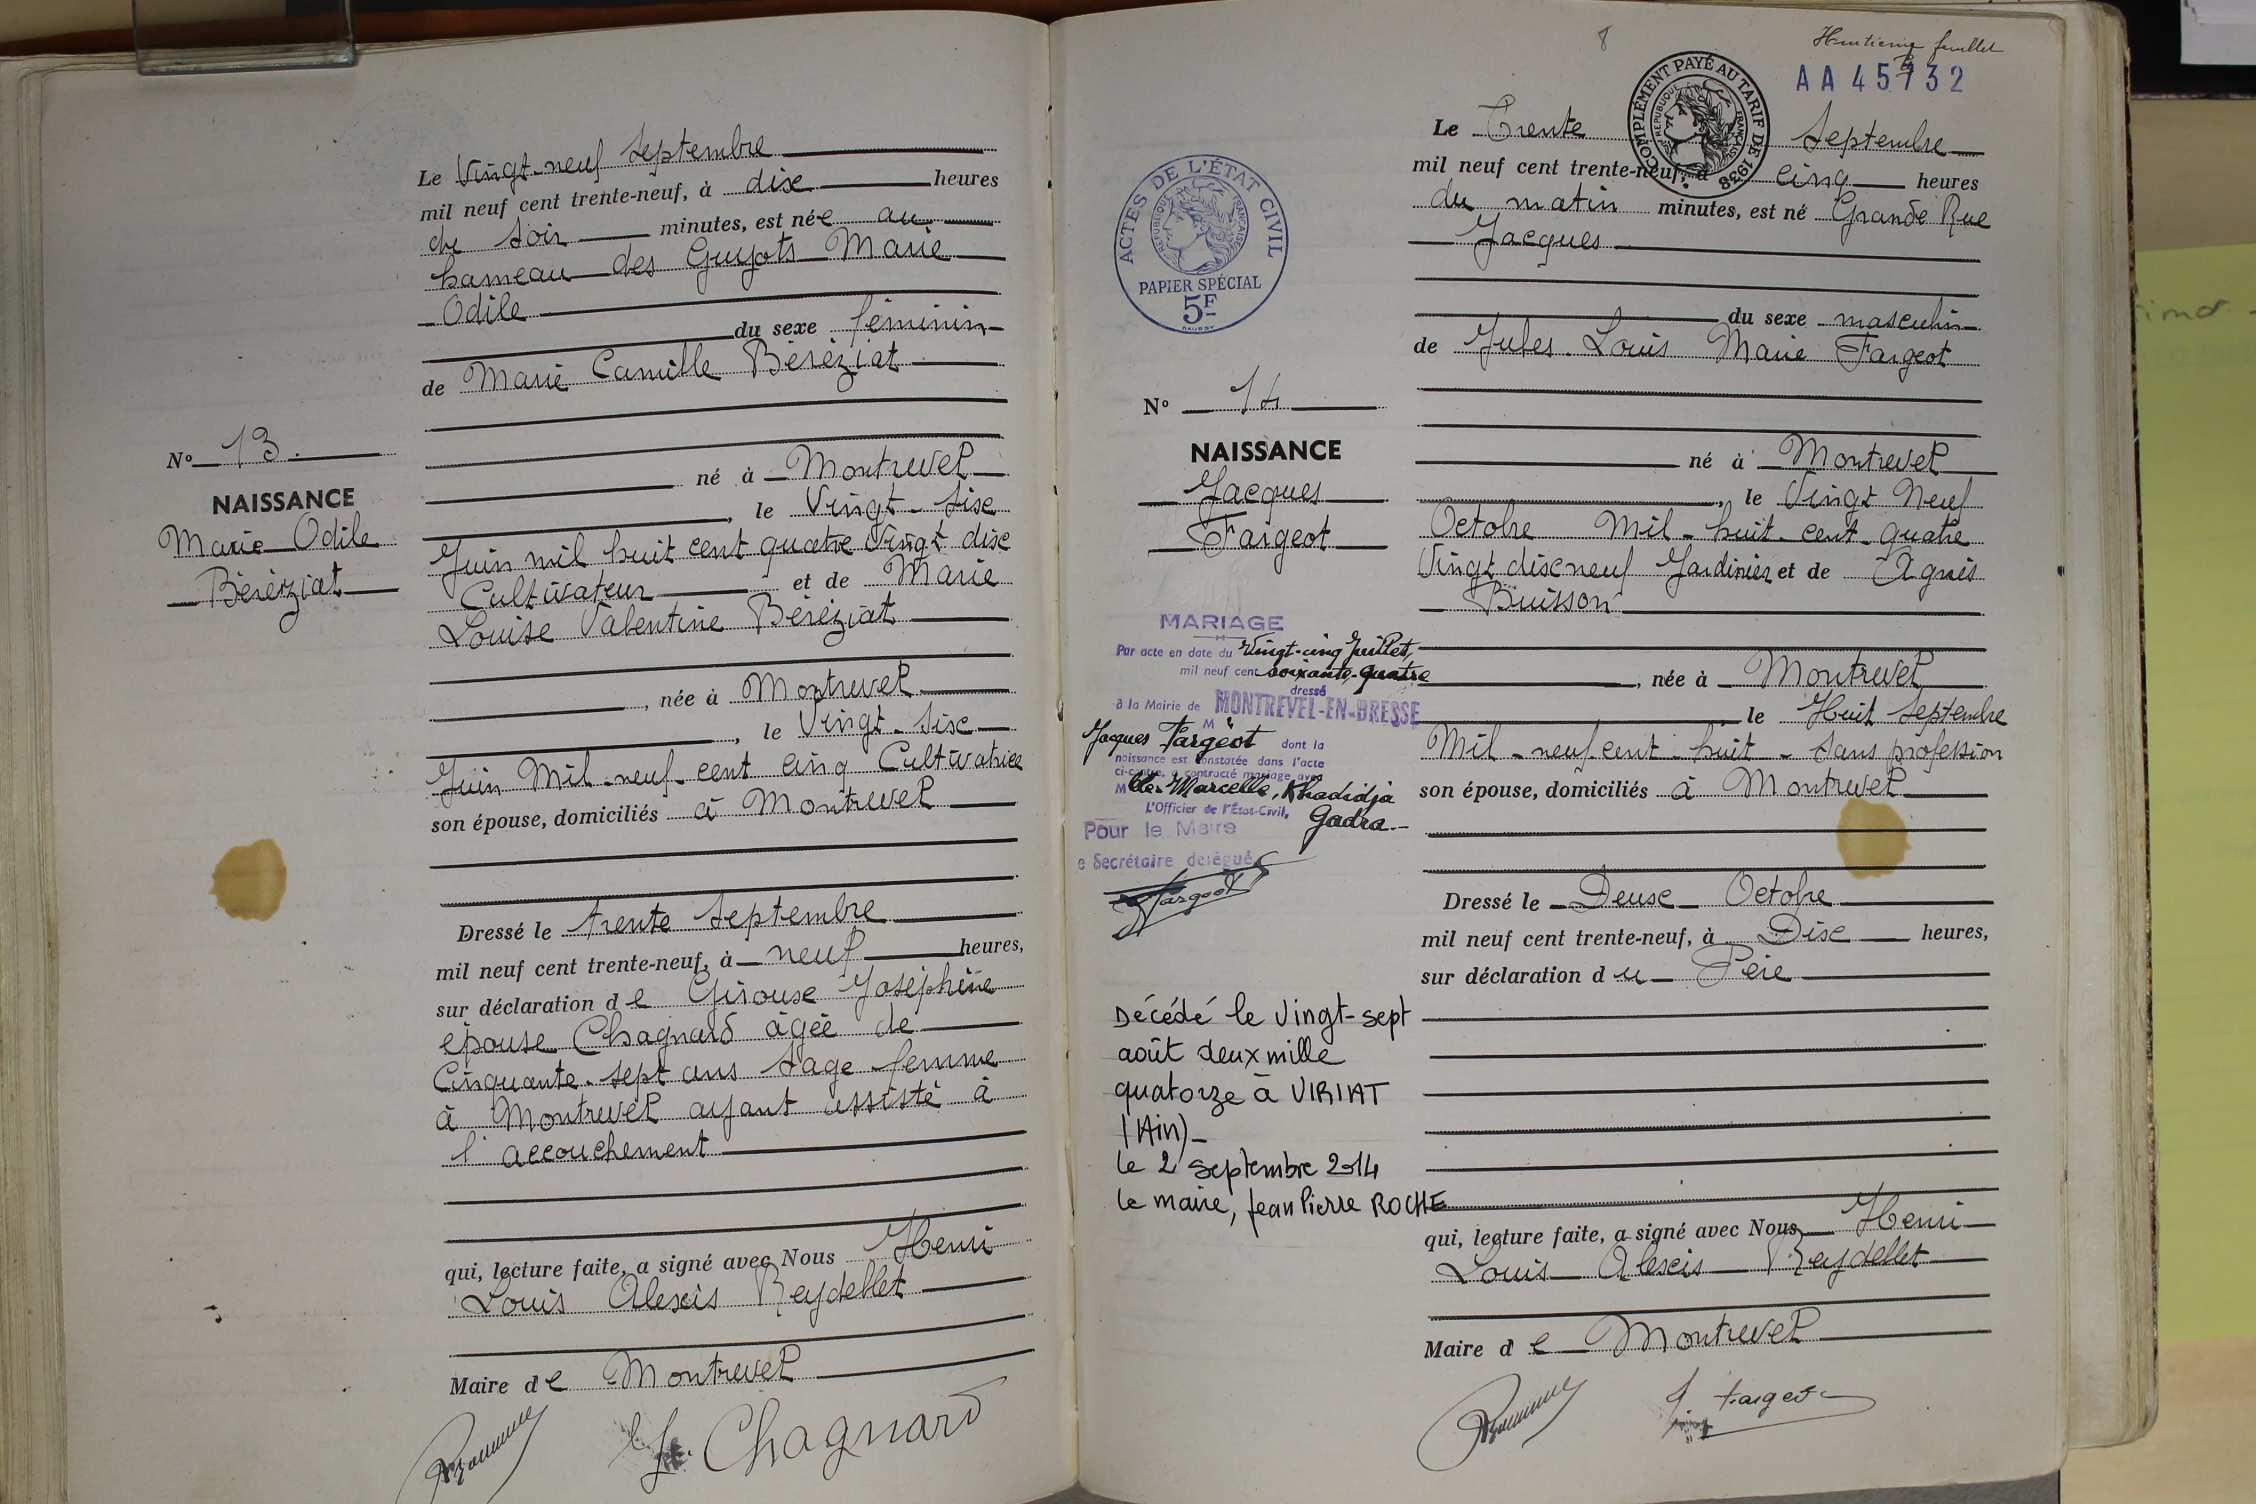 Le Vingt-neuf Septembre
mil neuf cent trente-neuf, à dix heures
du soir minutes, est née au
hameau des Guyots Marie
Odile
du sexe féminin
de Marie Camille Béréziat
né à Montrevel
, le Vingt-Six
Juin mil huit cent quatre Vingt dix
Cultivateur et de Marie
Louise Valentine Béréziat
, née à Montrevel
, le Vingt-Six
Juin Mil-neuf-cent cinq Cultivatrice
son épouse, domiciliés à Montrevel
Dressé le trente Septembre
mil neuf cent trente-neuf, à neuf heures,
sur déclaration de Giroux Joséphine
épouse Chagnard âgée de
Cinquante-sept ans Sage-femme
à Montrevel ayant assisté à
l'accouchement
qui, lecture faite, a signé avec Nous Henri
Louis Alexis Reydellet
Maire de Montrevel
Chagnard
No 13.
NAISSANCE
Marie Odile
Béréziat
8
Huitième feuillet
AA 45732
COMPLÉMENT PAYÉ AU TARIF DE 1938
RÉPUBLIQUE FRANÇAISE
Le Trente Septembre
mil neuf cent trente-neuf, à cinq heures
du matin minutes, est né Grande Rue
Jacques
du sexe masculin
de Jules-Louis Marie Fargeot
né à Montrevel
, le Vingt Neuf
Octobre Mil-huit-cent-quatre
Vingt dix neuf Jardinier et de Agnès
Buisson
, née à Montrevel
le Huit Septembre
Mil-neuf-cent-huit-sans profession
son épouse, domiciliés à Montrevel
Dressé le Deux Octobre
mil neuf cent trente-neuf, à Dix heures,
sur déclaration du Père
qui, lecture faite, a signé avec Nous Henri
Louis Alexis Reydellet
Maire de Montrevel
J. Fargeot
ACTES DE L'ÉTAT CIVIL
RÉPUBLIQUE FRANÇAISE
PAPIER SPÉCIAL
5F
No 14
NAISSANCE
Jacques
Fargeot
MARIAGE
Par acte en date du Vingt-cinq Juillet,
mil neuf cent soixante-quatre
dressé
à la Mairie de MONTREVEL-EN-BRESSE
M
Jacques Fargeot dont la
naissance est constatée dans l'acte
ci-contre, a contracté mariage avec
Mlle Marcelle, Khadidja
L'Officier de l'État-Civil, Gadra.-
Pour le Maire
e Secrétaire délégué
Fargeot
Décédé le Vingt-sept
août deux mille
quatorze à VIRIAT
(Ain)-
le 2 septembre 2014
le maire, Jean Pierre ROCHE